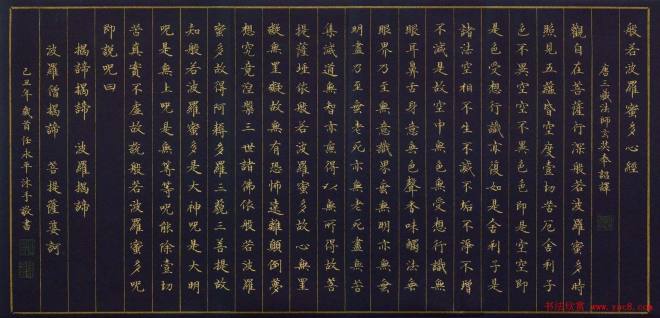 般若波羅蜜多心經
唐三藏法師玄奘奉詔譯
觀自在菩薩行深般若波羅蜜多時
照見五蘊皆空度壹切苦厄舍利子
色不異空空不異色色即是空空即
是色受想行識亦復如是舍利子是
諸法空相不生不滅不垢不淨不增
不減是故空中無色無受想行識無
眼耳鼻舌身意無色聲香味觸法無
眼界乃至無意識界無無明亦無無
明盡乃至無老死亦無老死盡無苦
集滅道無智亦無得以無所得故菩
提薩埵依般若波羅蜜多故心無罣
礙無罣礙故無有恐怖遠離顛倒夢
想究竟涅槃三世諸佛依般若波羅
蜜多故得阿耨多羅三藐三菩提故
知般若波羅蜜多是大神呪是大明
呪是無上呪是無等等呪能除壹切
苦真實不虛故說般若波羅蜜多呪
即說呪曰
揭諦揭諦 波羅揭諦
波羅僧揭諦 菩提薩婆訶
己丑年歲首任永平沐手敬書
书法欣赏